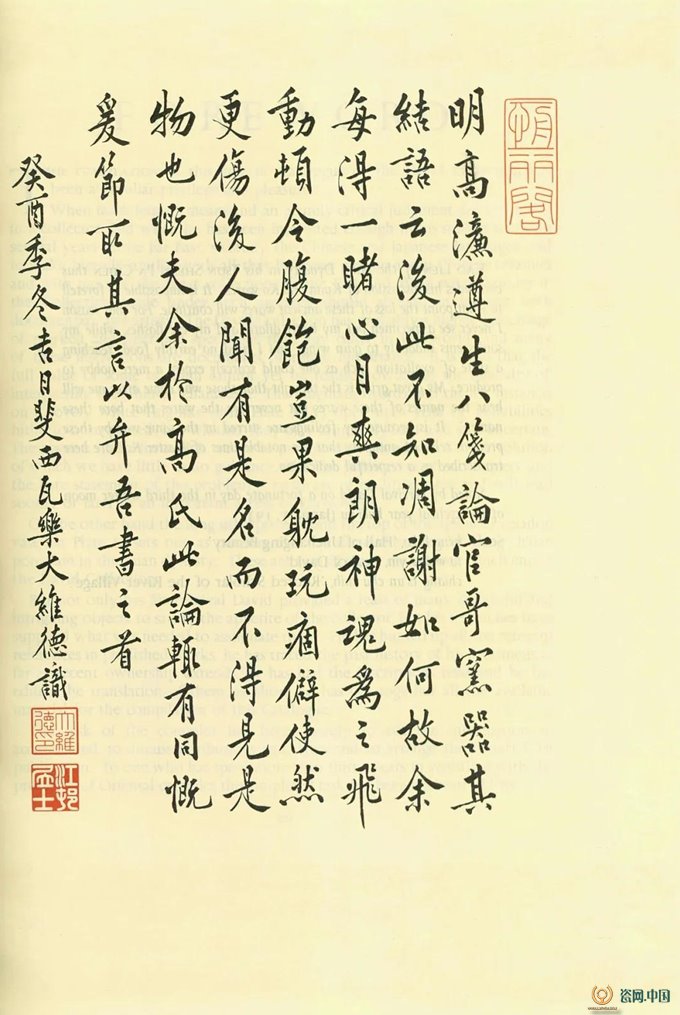 明高濂遵生八箋論官哥窯器其
結語云後此不知凋謝如何故余
每得一睹心目爽朗神魂為之飛
動頓令腹飽豈果躭玩痼僻使然
更傷後人聞有是名而不得見是
物也慨夫余於高氏此論輒有同慨
爰節取其言以弁吾書之首
癸酉季冬吉日斐西瓦樂大維德識
大維德印
瓷网.中国